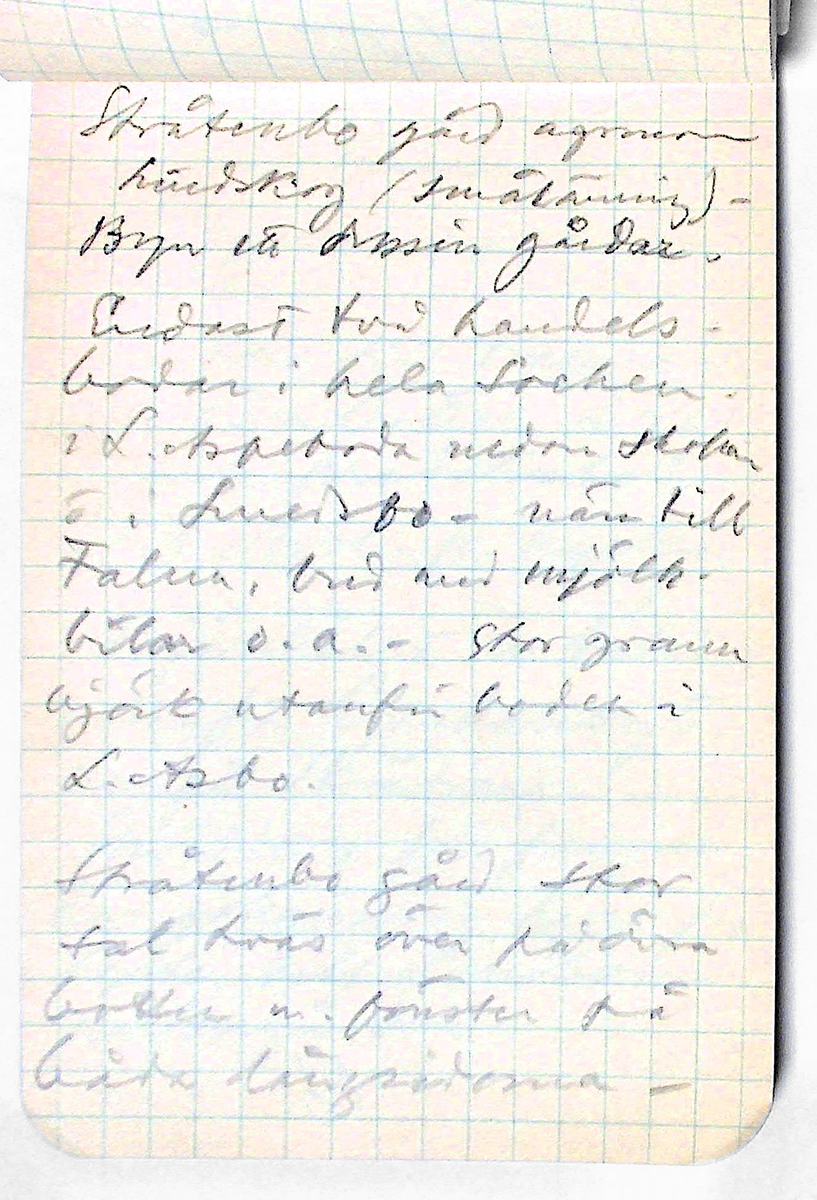 Stråtenbo gård
(småtärning) -
Byn ett dussin gårdar.
Endast två handels-
bodar i hela socken.
i L. Aspeboda nedan skolan
o i Smedsbo - nära till
Falun, bud med mjölk-
bilar o. a. - Stor grann
björk utanför boden i
L. Asbo.
Stråtenbo gård stor
sal tvärs över på övra
botten m. fönster på
båda långsidorna -